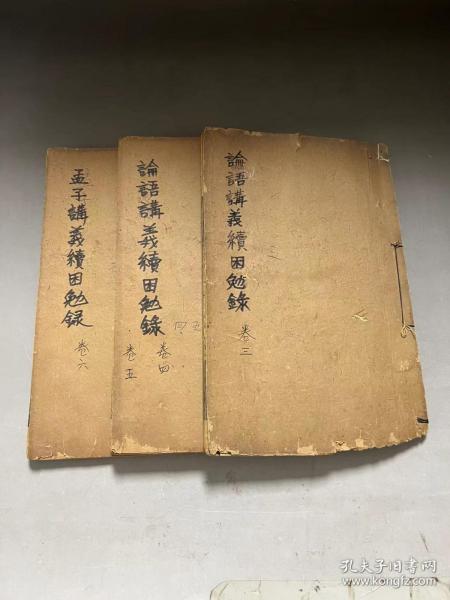 論語講義續困勉錄
卷三
論語講義續困勉錄
卷四
卷五
孟子講義續困勉录
卷六
孔夫子旧书网
www.kongfz.com